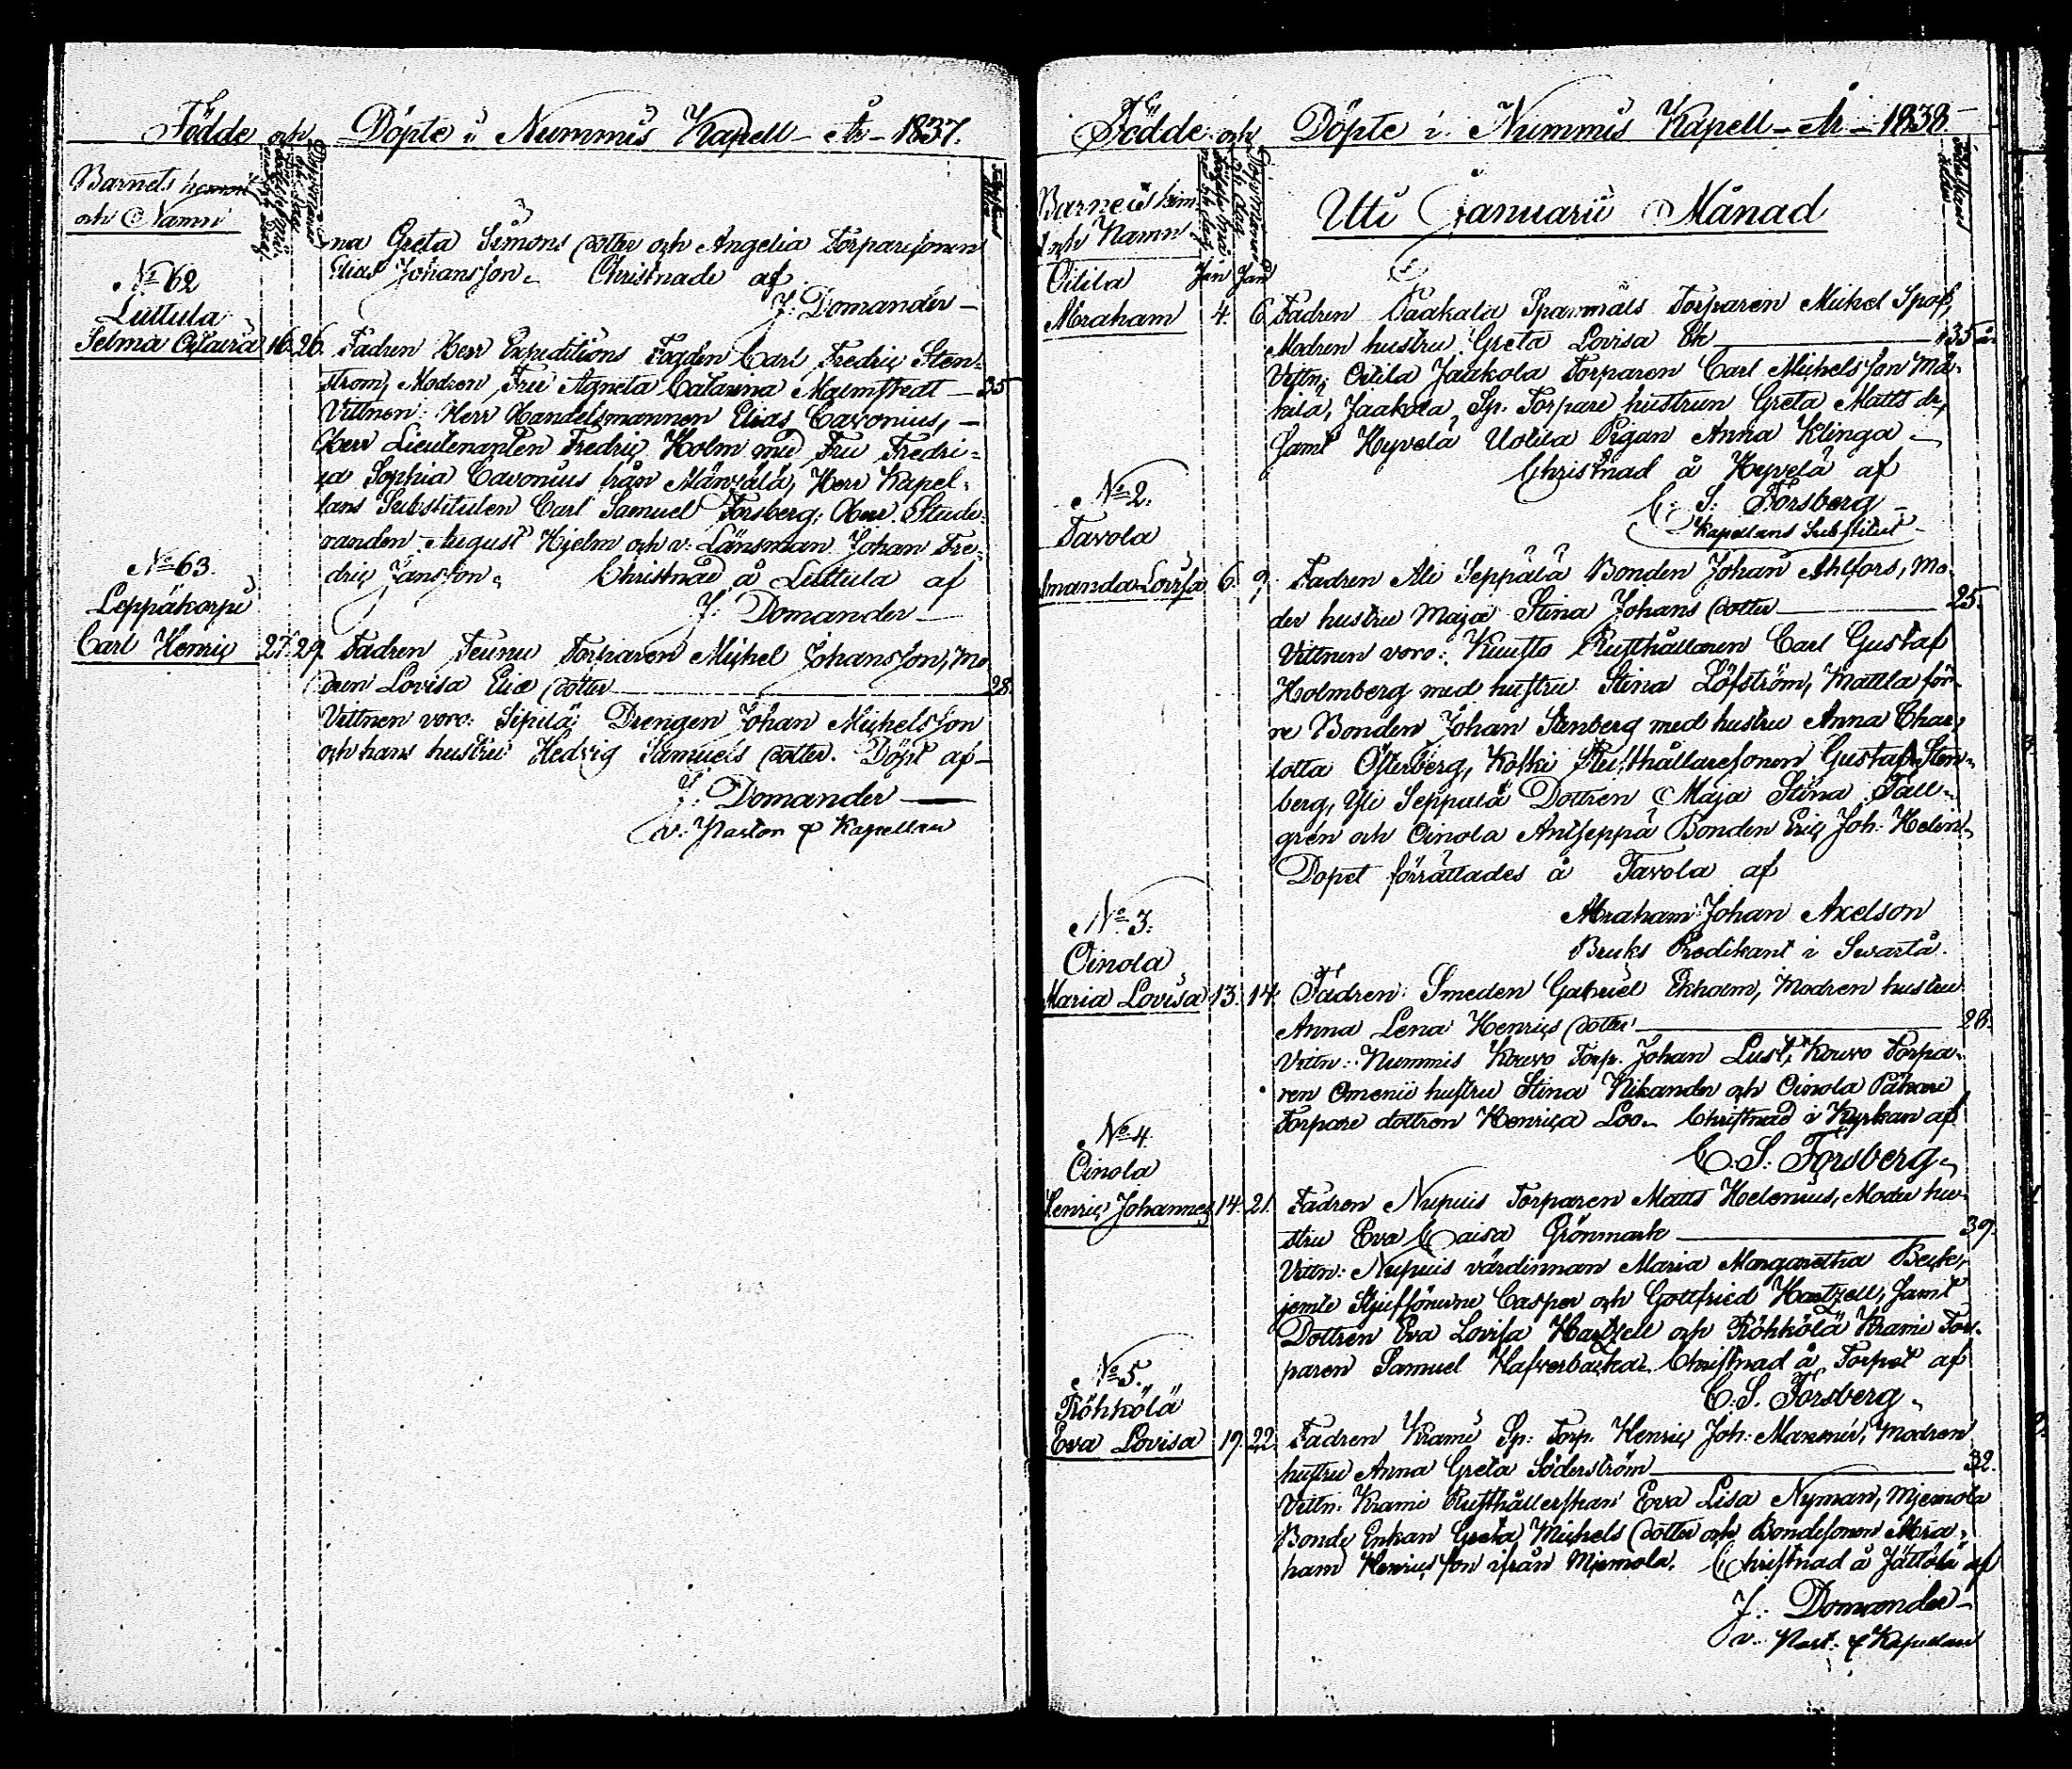 Födde och Döpte i Nummis Kapell - År - 1837.
Barnets hemvist
och Namn
na Greta Simons dotter och Angelia Torparesonen
Elias Johansson. Christnade af
J: Domander
No 62
Luttula
Selma 16. 26. Fadren Herr Expeditions Fogden Carl Fredric Sten-
ström, Modren Fru Agneta Catarina Malmstedt — 35
Vittnen: Herr Handelsmannen Elias Cavonius, —
Herr Lieutenanten Fredric Holm med Fru Fredri=
ca Sophia Cavonius från Herr Kapel-
lans Substituten Carl Samuel Forsberg, Herr Stude-
randen August Hjelm och v. Länsman Johan Fre-
dric Jansson. Christnad å Luttula af
J: Domander
No 63.
Leppäkorpi
Carl Henric 27. 29. Fadren Teunu Torparen Michel Johansson, Mo
dren Lovisa Eliæ dotter — 28.
Vittnen voro: Sipilä Drengen Johan Michelsson
och hans hustru Hedvig Samuels dotter. Döpt af —
J: Domander
v. Pastor & Kapellan
Födde och Döpte i Nummis Kapell - År - 1838.
Uti Januarii Månad
Barnets hem
och Namn
Oitila Jan Jan
Abraham 4. 6. Fadren Jaakola Spanmåls Torparen Michel Spof,
Modren hustru Greta Lovisa Ek — 35 år
Vittn: Oitila Jaakola Torparen Carl Michelsson Mä-
kilä, Jaakola Sp. Torpare hustrun Greta Matts dr,
samt Hyvelä Uotila Pigan Anna Klinga —
Christnad å Hyvelä af
C. S. Forsberg
Kapellans Substitut
No 2.
Tavola
Amanda Lovisa 6. 9. Fadren Ali Seppälä Bonden Johan Ahlfors, Mo-
der hustru Maja Stina Johans dotter — 25.
Vittnen voro: Kuusto Rusthållaren Carl Gustaf
Holmberg med hustru Stina Löfström, Mattla för-
re Bonden Johan Stenberg med hustru Anna Char-
lotta Österberg, Koski Rusthållaresonen Gustaf Sten-
berg, Yli Seppälä Dottren Maja Stina Täll-
gren och Oinola Antseppä Bonden Eric Joh: Helin.
Dopet förrättades å Tavola af
Abraham Johan Axelson
Bruks Predikant i Svartå.
No 3.
Oinola
Maria Lovisa 13. 14. Fadren: Smeden Gabriel Ekholm, Modren hustru
Anna Lena Henrics dotter — 28.
Vittn: Nummis Kouvo Torp. Johan Lust, Kouvo Torpa-
ren Omenii hustru Stina Nikander och Oinola Pakari
Torpare dottren Henrica Loo. Christnad i Kyrkan af
C. S. Forsberg
No 4.
Oinola
Henric Johannes 14. 21. Fadren Nupuis Torparen Matts Helenius, Moder hu-
stru Eva Caisa Grönmark — 39.
Vittn: Nupuis värdinnan Maria Margaretha Beck,
jemte Stjufsönerne Casper och Gottfried Hartzell, samt
Dottren Eva Lovisa Hartzell och Röhkölä Krami Tor-
paren Samuel Hafverbacka. Christnad å Torpet af
C. S. Forsberg.
No 5.
Röhkölä
Eva Lovisa 19. 22. Fadren Krami Sp: Torp. Henric Joh: Modren
hustru Anna Greta Söderström — 32.
Vittn: Krami Rusthållerskan Eva Lisa Nyman, Mjemola
Bonde Enkan Greta Michels dotter och Bondesonen Abra-
ham Henricsson ifrån Mjemola. Christnad å Jättölä af
J: Domander
v. Past: & Kapellan